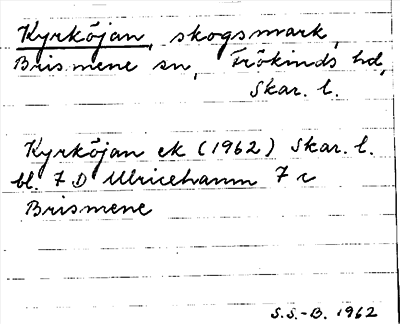 Kyrköjan, skogsmark,
Brismene sn, Frökinds hd,
Skar. l.
Kyrköjan ek (1962) Skar. l.
bl. 7 D Ulricehamn 7 c
Brismene
S.S.-B. 1962